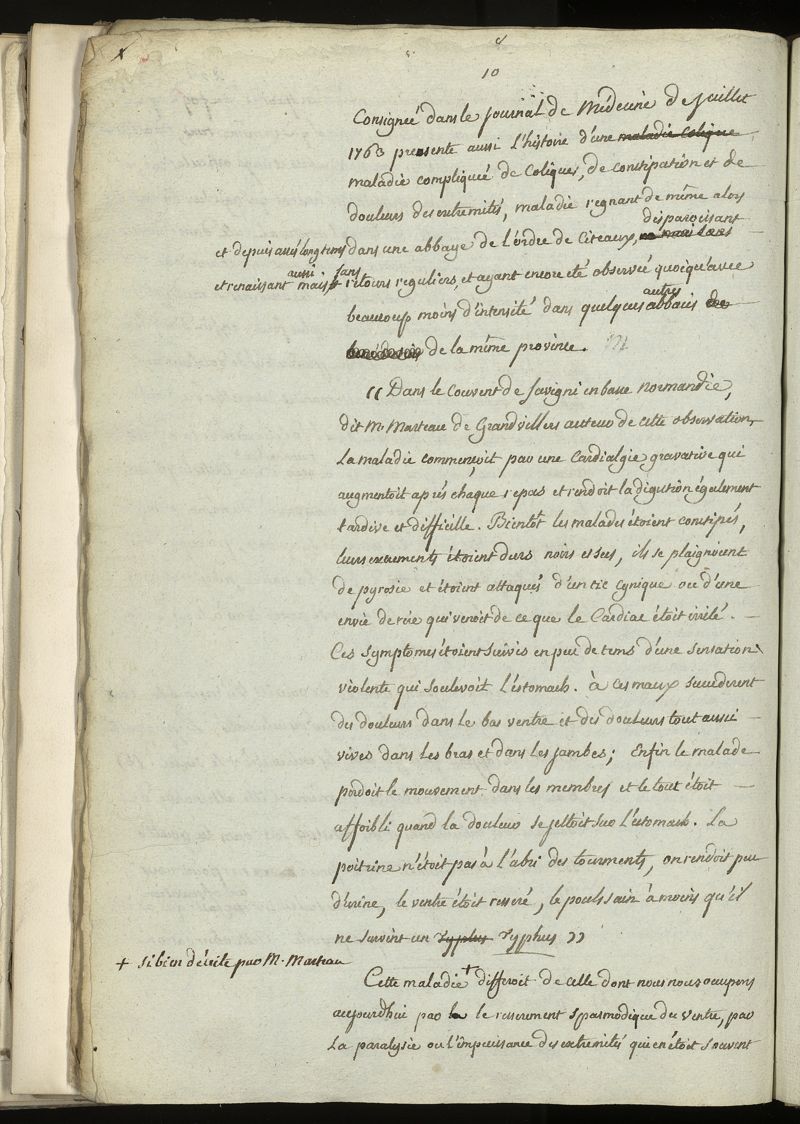 10
Consignée dans le journal de Médecine de Juillet
1763 presente aussi l'histoire d'une maladie colique
maladie compliquée de Coliques, de constipation et de
douleurs des extremités, maladie regnant de même alors
disparoissant
et depuis assés longtems dans une abbaye de l'ordre de Citeaux,
aussi sans
et renaissant mais retours reguliers, et ayant encore eté observée quoiqu'avec
autres
beaucoup moins d'intensité dans quelques abbaies de
de la même province.
(( Dans le Couvent de Savigni en basse Normandie,
dit M. Marteau de Grandvillers auteur de cette observation,
La maladie commençoit par une Cardialgie gravative qui
augmentoit après chaque repas et rendoit la digestion également
tardive et difficille. Bientôt les malades étoient constipés,
leurs excrements étoient durs noirs et secs, ils se plaignoient
de pyrosie et étoient attaqués d'un tic cynique ou d'une
envie de rire qui venoit de ce que le Cardiac étoit irrité.
Ces symptomes étoient suivis en peu de tems d'une sensation
violente qui soulevoit l'estomach. à ces maux succederent
des douleurs dans le bas ventre et des douleurs tout aussi
vives dans les bras et dans les jambes; Enfin le malade
perdoit le mouvement dans les membres et le tout étoit
affoibli quand la douleur se jettoit sur l'estomach. La
poitrine n'étoit pas à l'abri des tourments, on rendoit peu
d'urine, le ventre étoit resseré, le pouls sain à moins qu'il
ne survint un Typhus Typhus ))
+ si bien décrite par M. Marteau
Cette maladie + differoit de celle dont nous nous occupons
aujourdhui par le resserrement spasmodique du ventre, par
La paralysie ou l'impuissance des extremités qui en étoit souvent